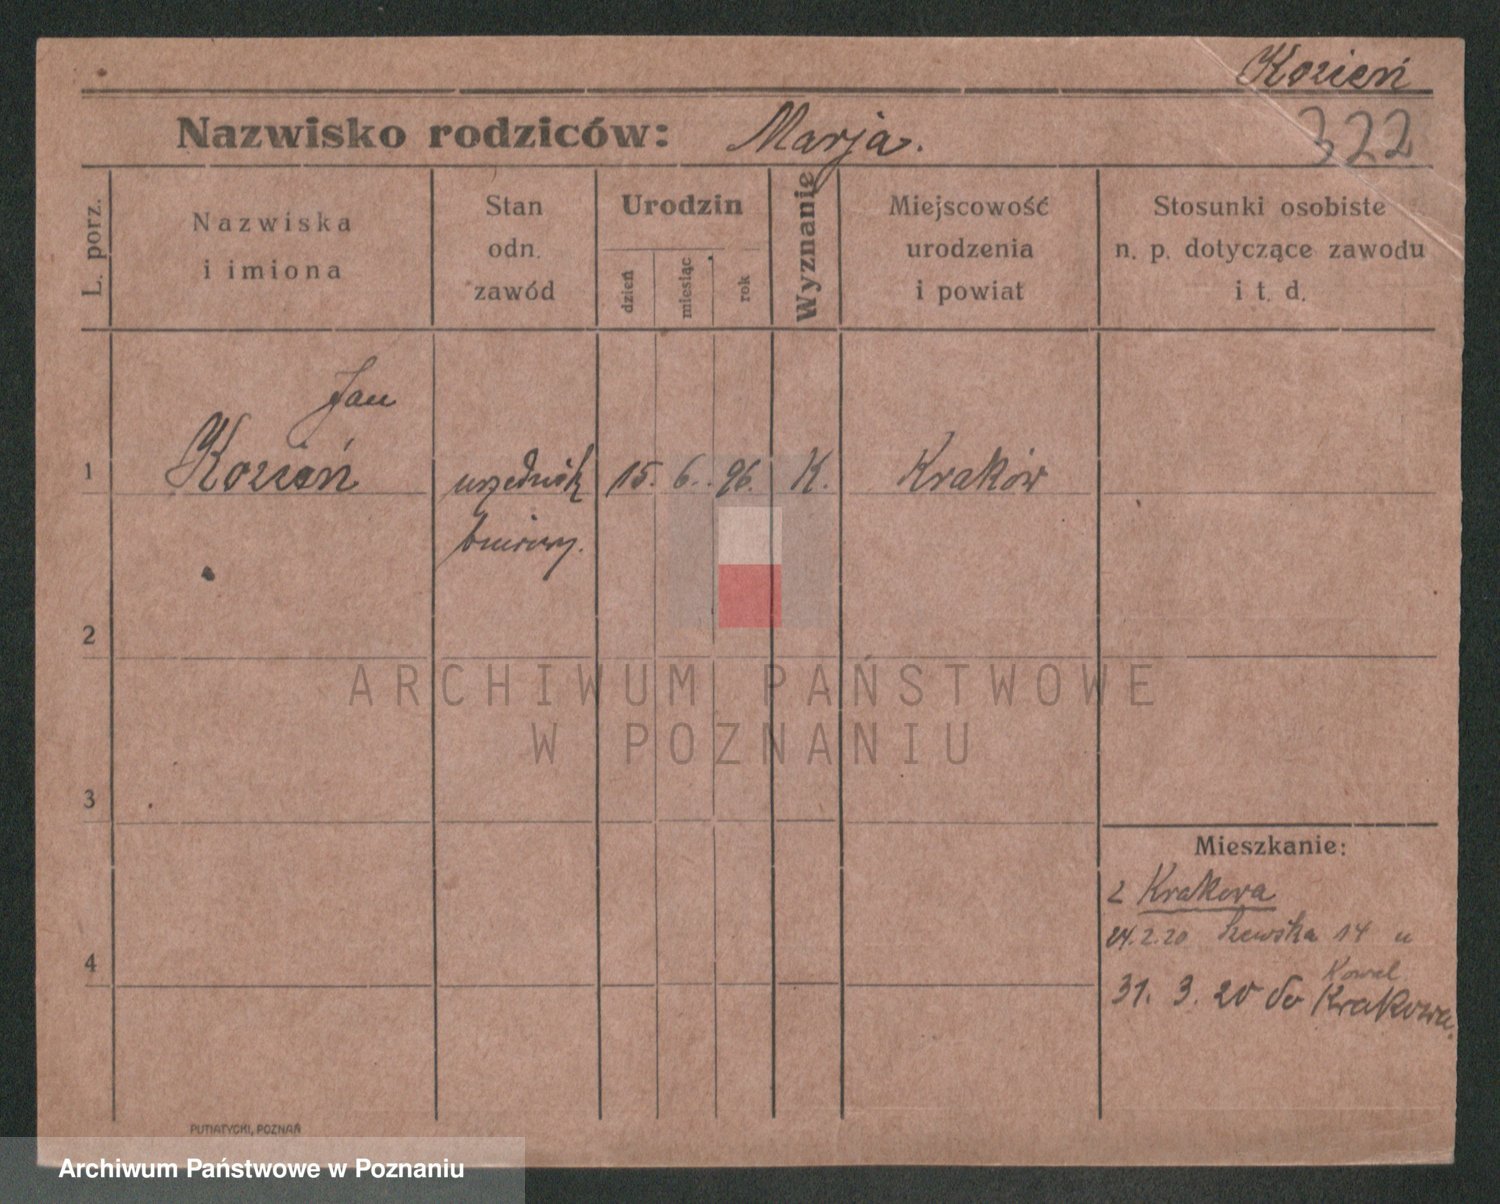 Kozień
Nazwisko rodziców: Marja.
322
L. porz.
Nazwiska
i imiona
Stan
odn.
zawód
Urodzin
dzień
miesiąc
rok
Wyznanie
Miejscowość
urodzenia
i powiat
Stosunki osobiste
n. p. dotyczące zawodu
i t. d.
Jan
1 Kozień urzędnik 15. 6. 96. K. Kraków
biurowy.
2
3
4
ARCHIWUM PAŃSTWOWE
W POZNANIU
Mieszkanie:
z Krakowa
24.2.20 Szewska 14 u
Kowal
31. 3. 20 do Krakowa.
PUTIATYCKI, POZNAŃ
Archiwum Państwowe w Poznaniu